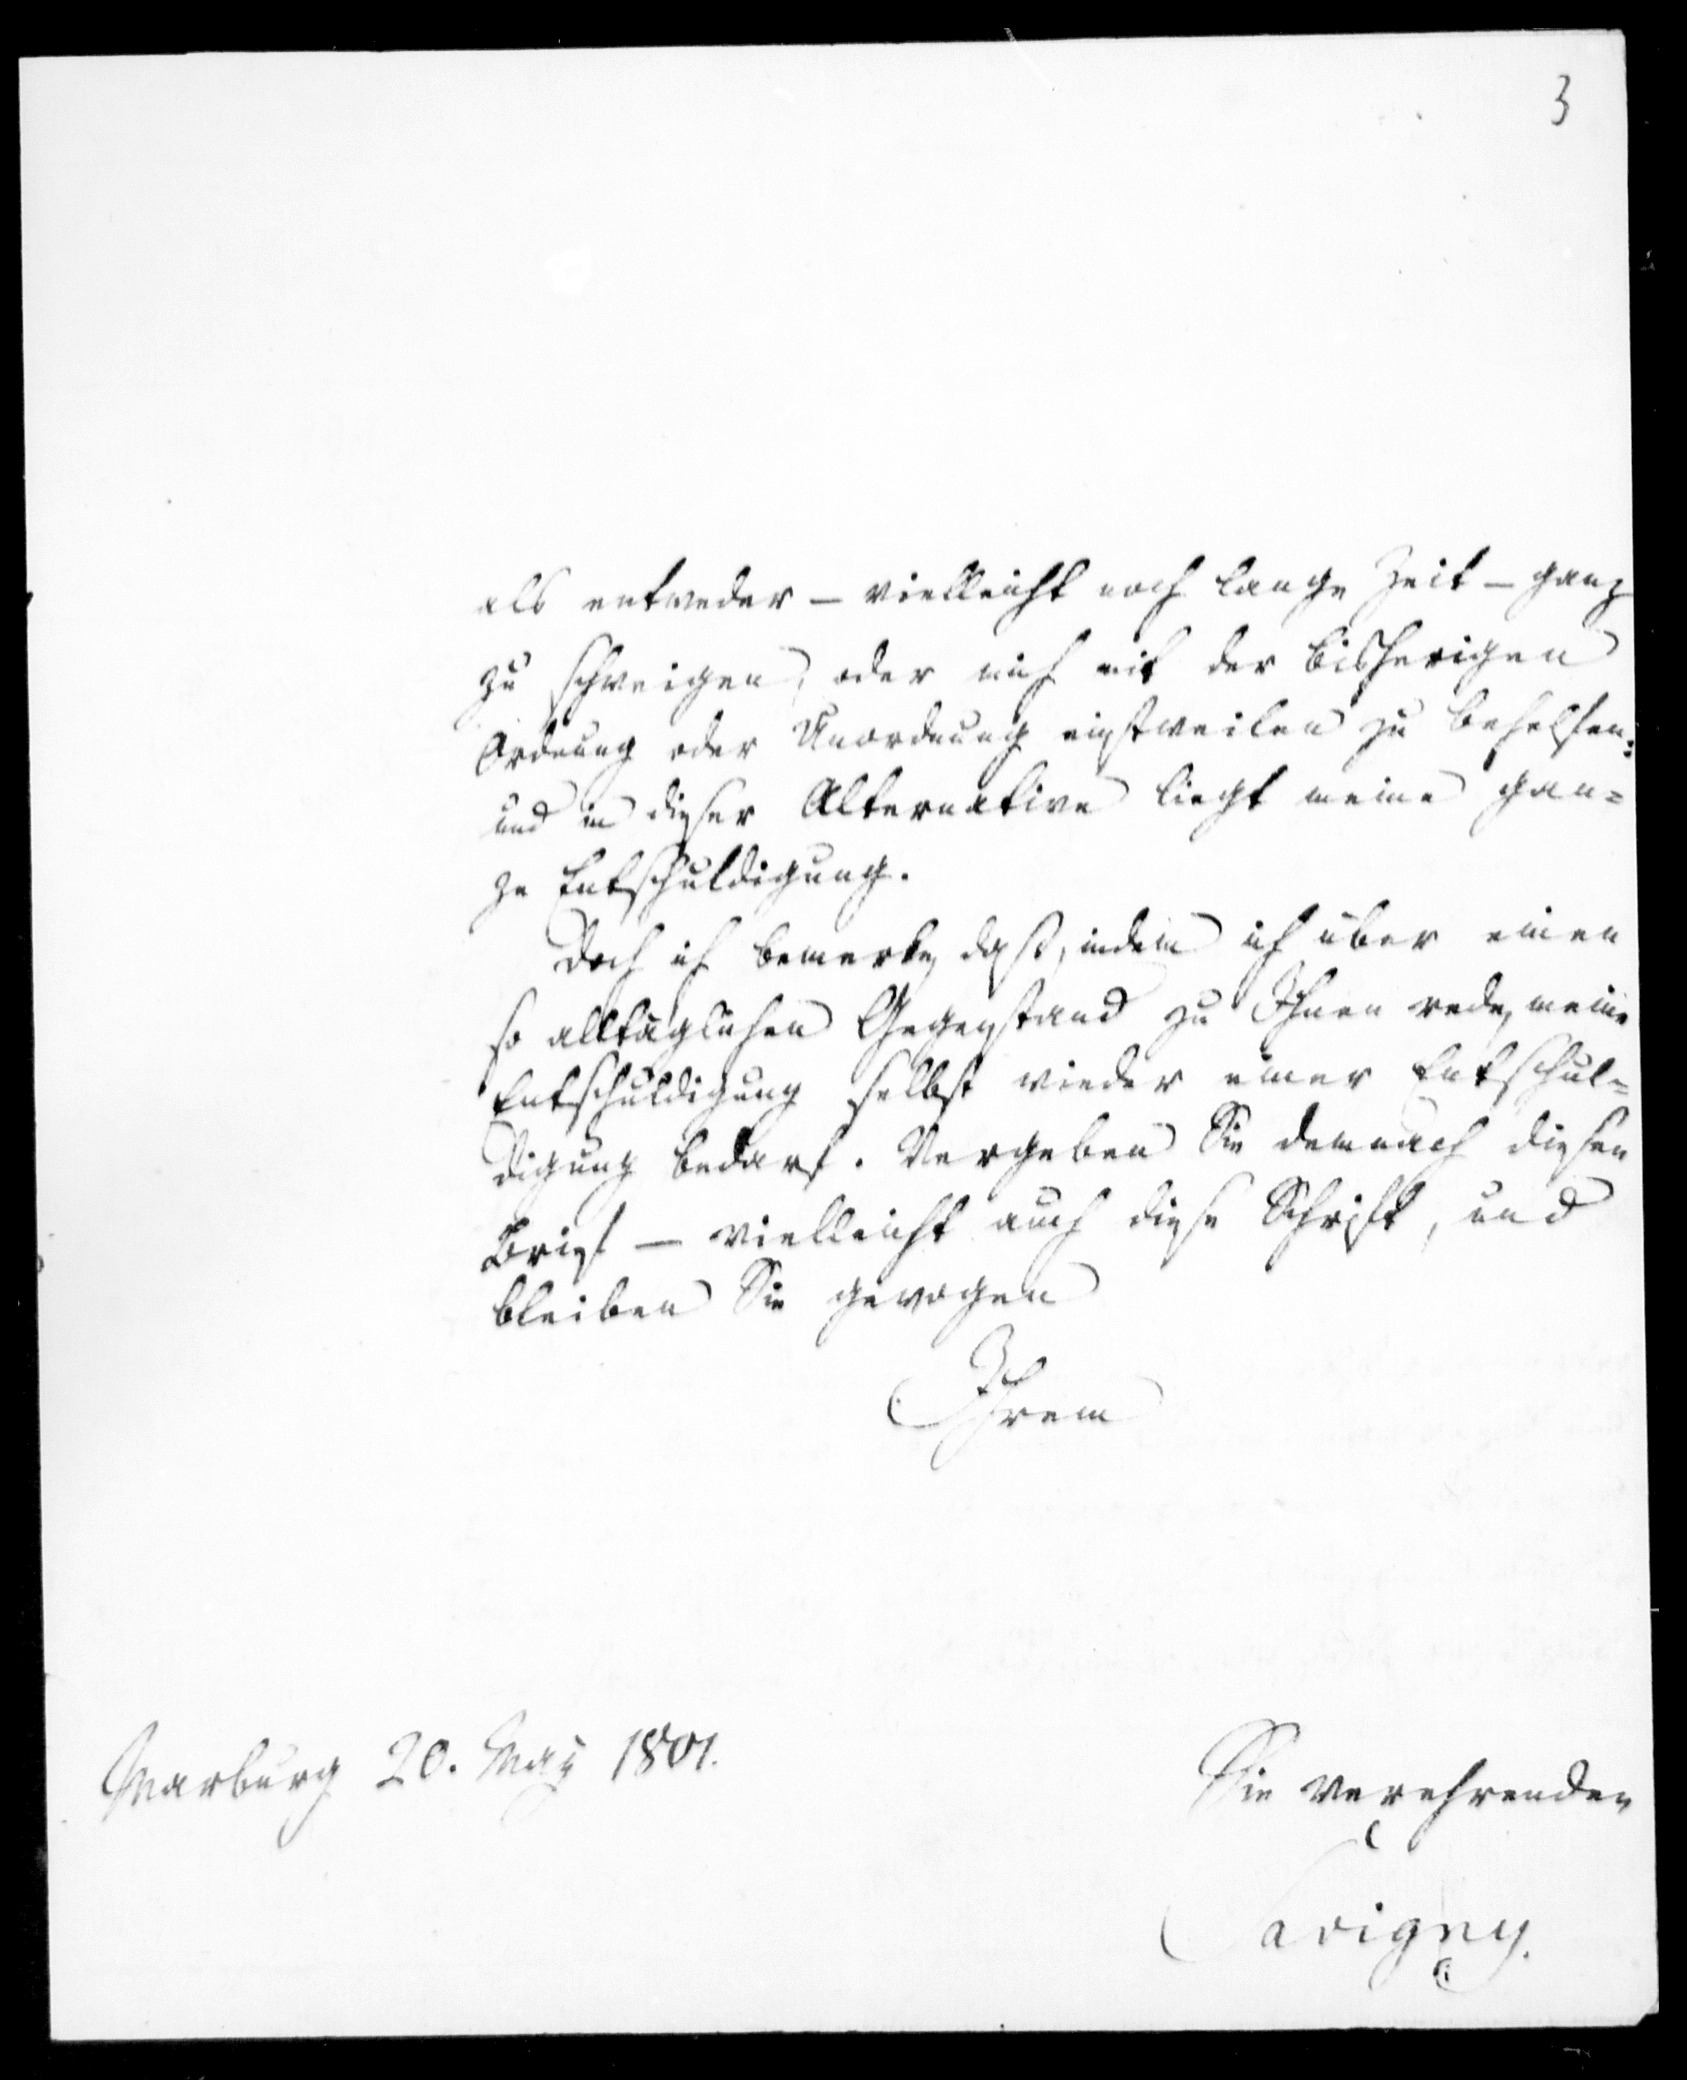 3
als entweder – vielleicht noch lange Zeit – ganz
zu schweigen, oder mich mit der bisherigen
Ordnung oder Unordnung einstweilen zu behelfen:
und in dieser Alternative liegt meine gan=
ze Entschuldigung.
Doch ich bemerke, daß, indem ich über einen
so alltäglichen Gegenstand zu Ihnen rede, meine
Entschuldigung selbst wieder einer Entschul=
digung bedarf. Vergeben Sie demnach diesen
Brief – vielleicht auch diese Schrift, und
bleiben Sie gewogen
Ihrem
Marburg 20. May 1801.
Sie verehrenden
Savigny.